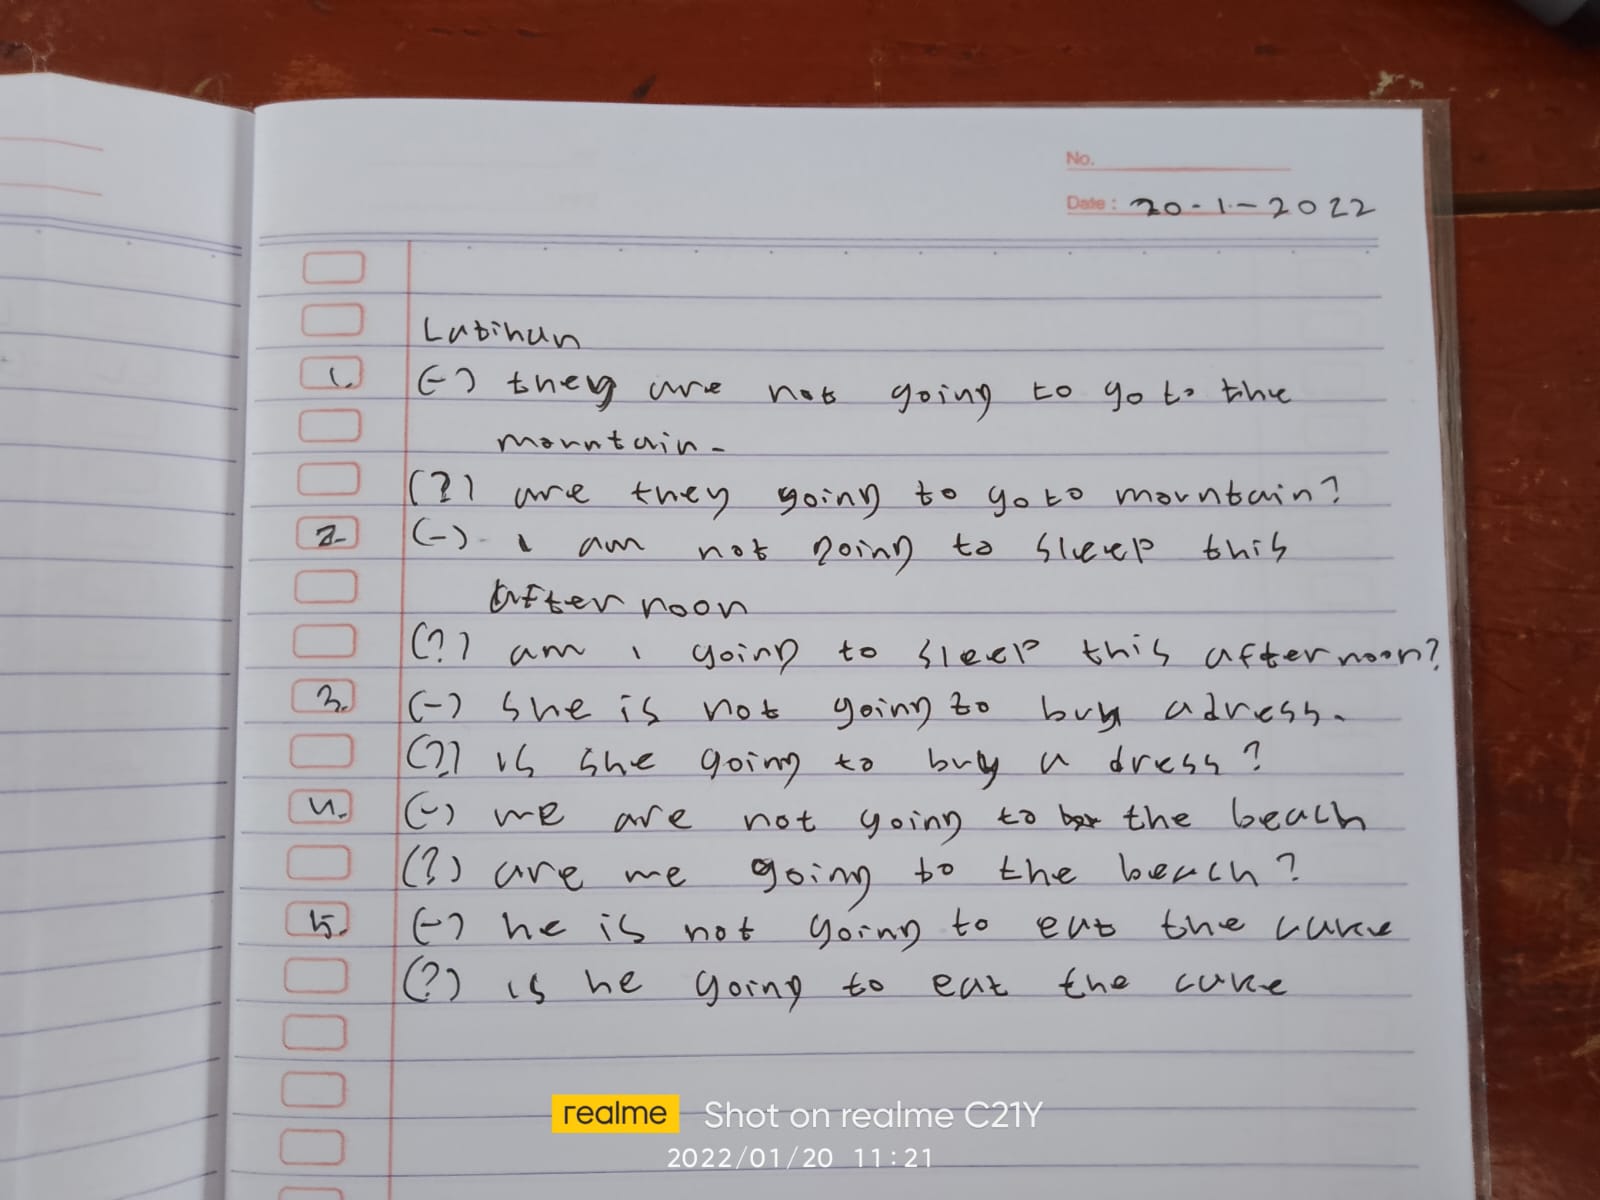 No.
Date : 20-1-2022
Latihan
1. (-) they are not going to go to the
mountain.
(?) are they going to go to mountain?
2. (-) I am not going to sleep this
afternoon
(?) am I going to sleep this afternoon?
3. (-) she is not going to buy adress.
(?) is she going to buy a dress?
4. (-) me are not going to the beach
(?) are me going to the beach?
5. (-) he is not going to eat the cake
(?) is he going to eat the cake
realme Shot on realme C21Y
2022/01/20 11:21